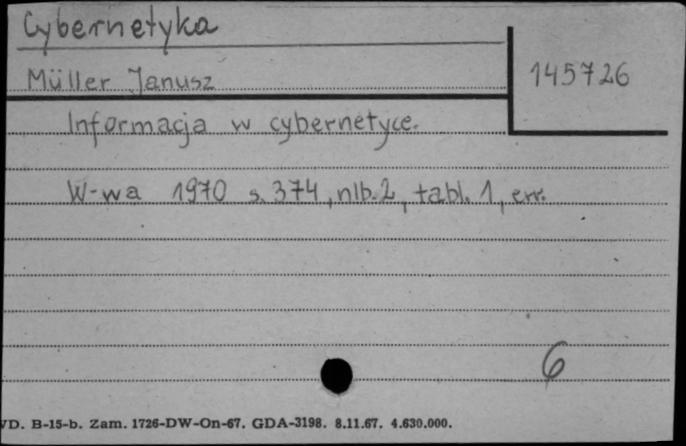 Cybernetyka
Müller Janusz
145726
Informacja w cybernetyce.
W-wa 1970 s. 374, nlb. 2, tabl. 1, err.
6
VD. B-15-b. Zam. 1726-DW-On-67. GDA-3198. 8.11.67. 4.630.000.